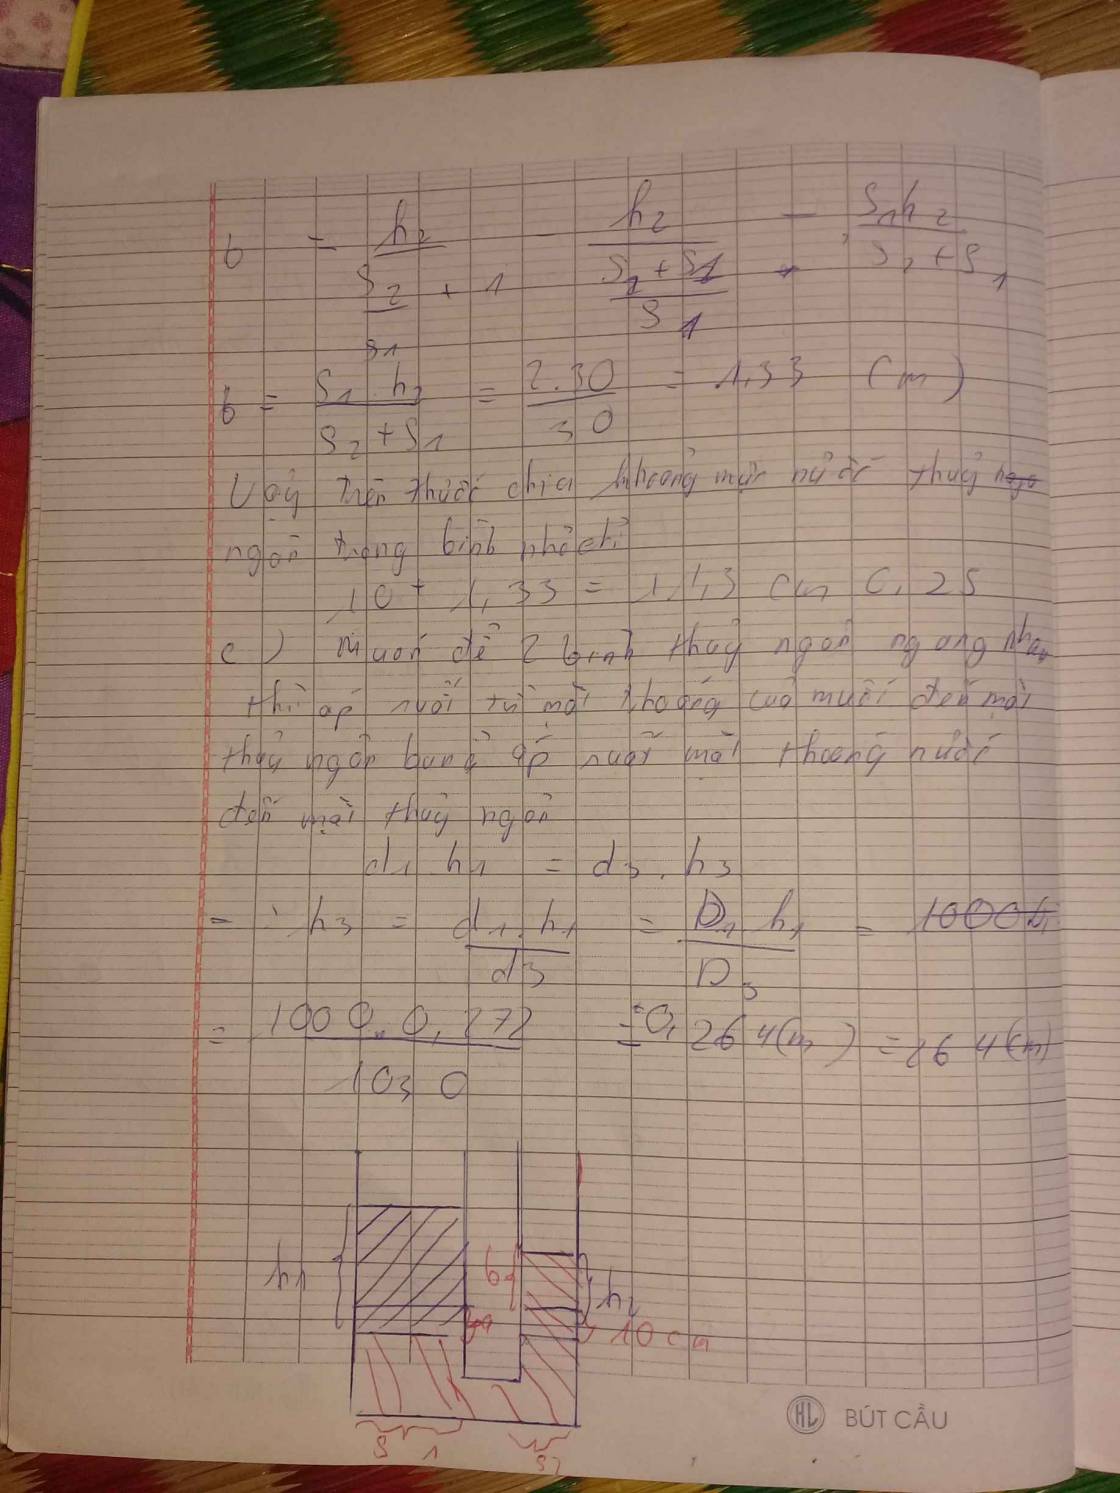 b = h2 / (S2/S1 + 1) = h2 / ((S2 + S1)/S1) = S1h2 / (S2 + S1)
b = S1.h2 / (S2 + S1) = 2.30 / 30 = 1,33 (m)
Vậy trên thước chia khoảng mực nước thuỷ
ngân trong bình nhỏ chỉ
10 + 1,33 = 11,3 cm 0,25
c) Muốn để 2 bình thuỷ ngân ngang nhau
thì áp suất từ mặt thoáng của muối đến mặt
thuỷ ngân bằng áp suất mặt thoáng nước
đến mặt thuỷ ngân
d1.h1 = d3.h3
=> h3 = d1.h1 / d3 = D1.h1 / D3 =
= 1000.0,272 / 1030 = 0,264(m) = 26 4(m)
h1
b
h2
10 cm
S1
S2
HL BÚT CẦU